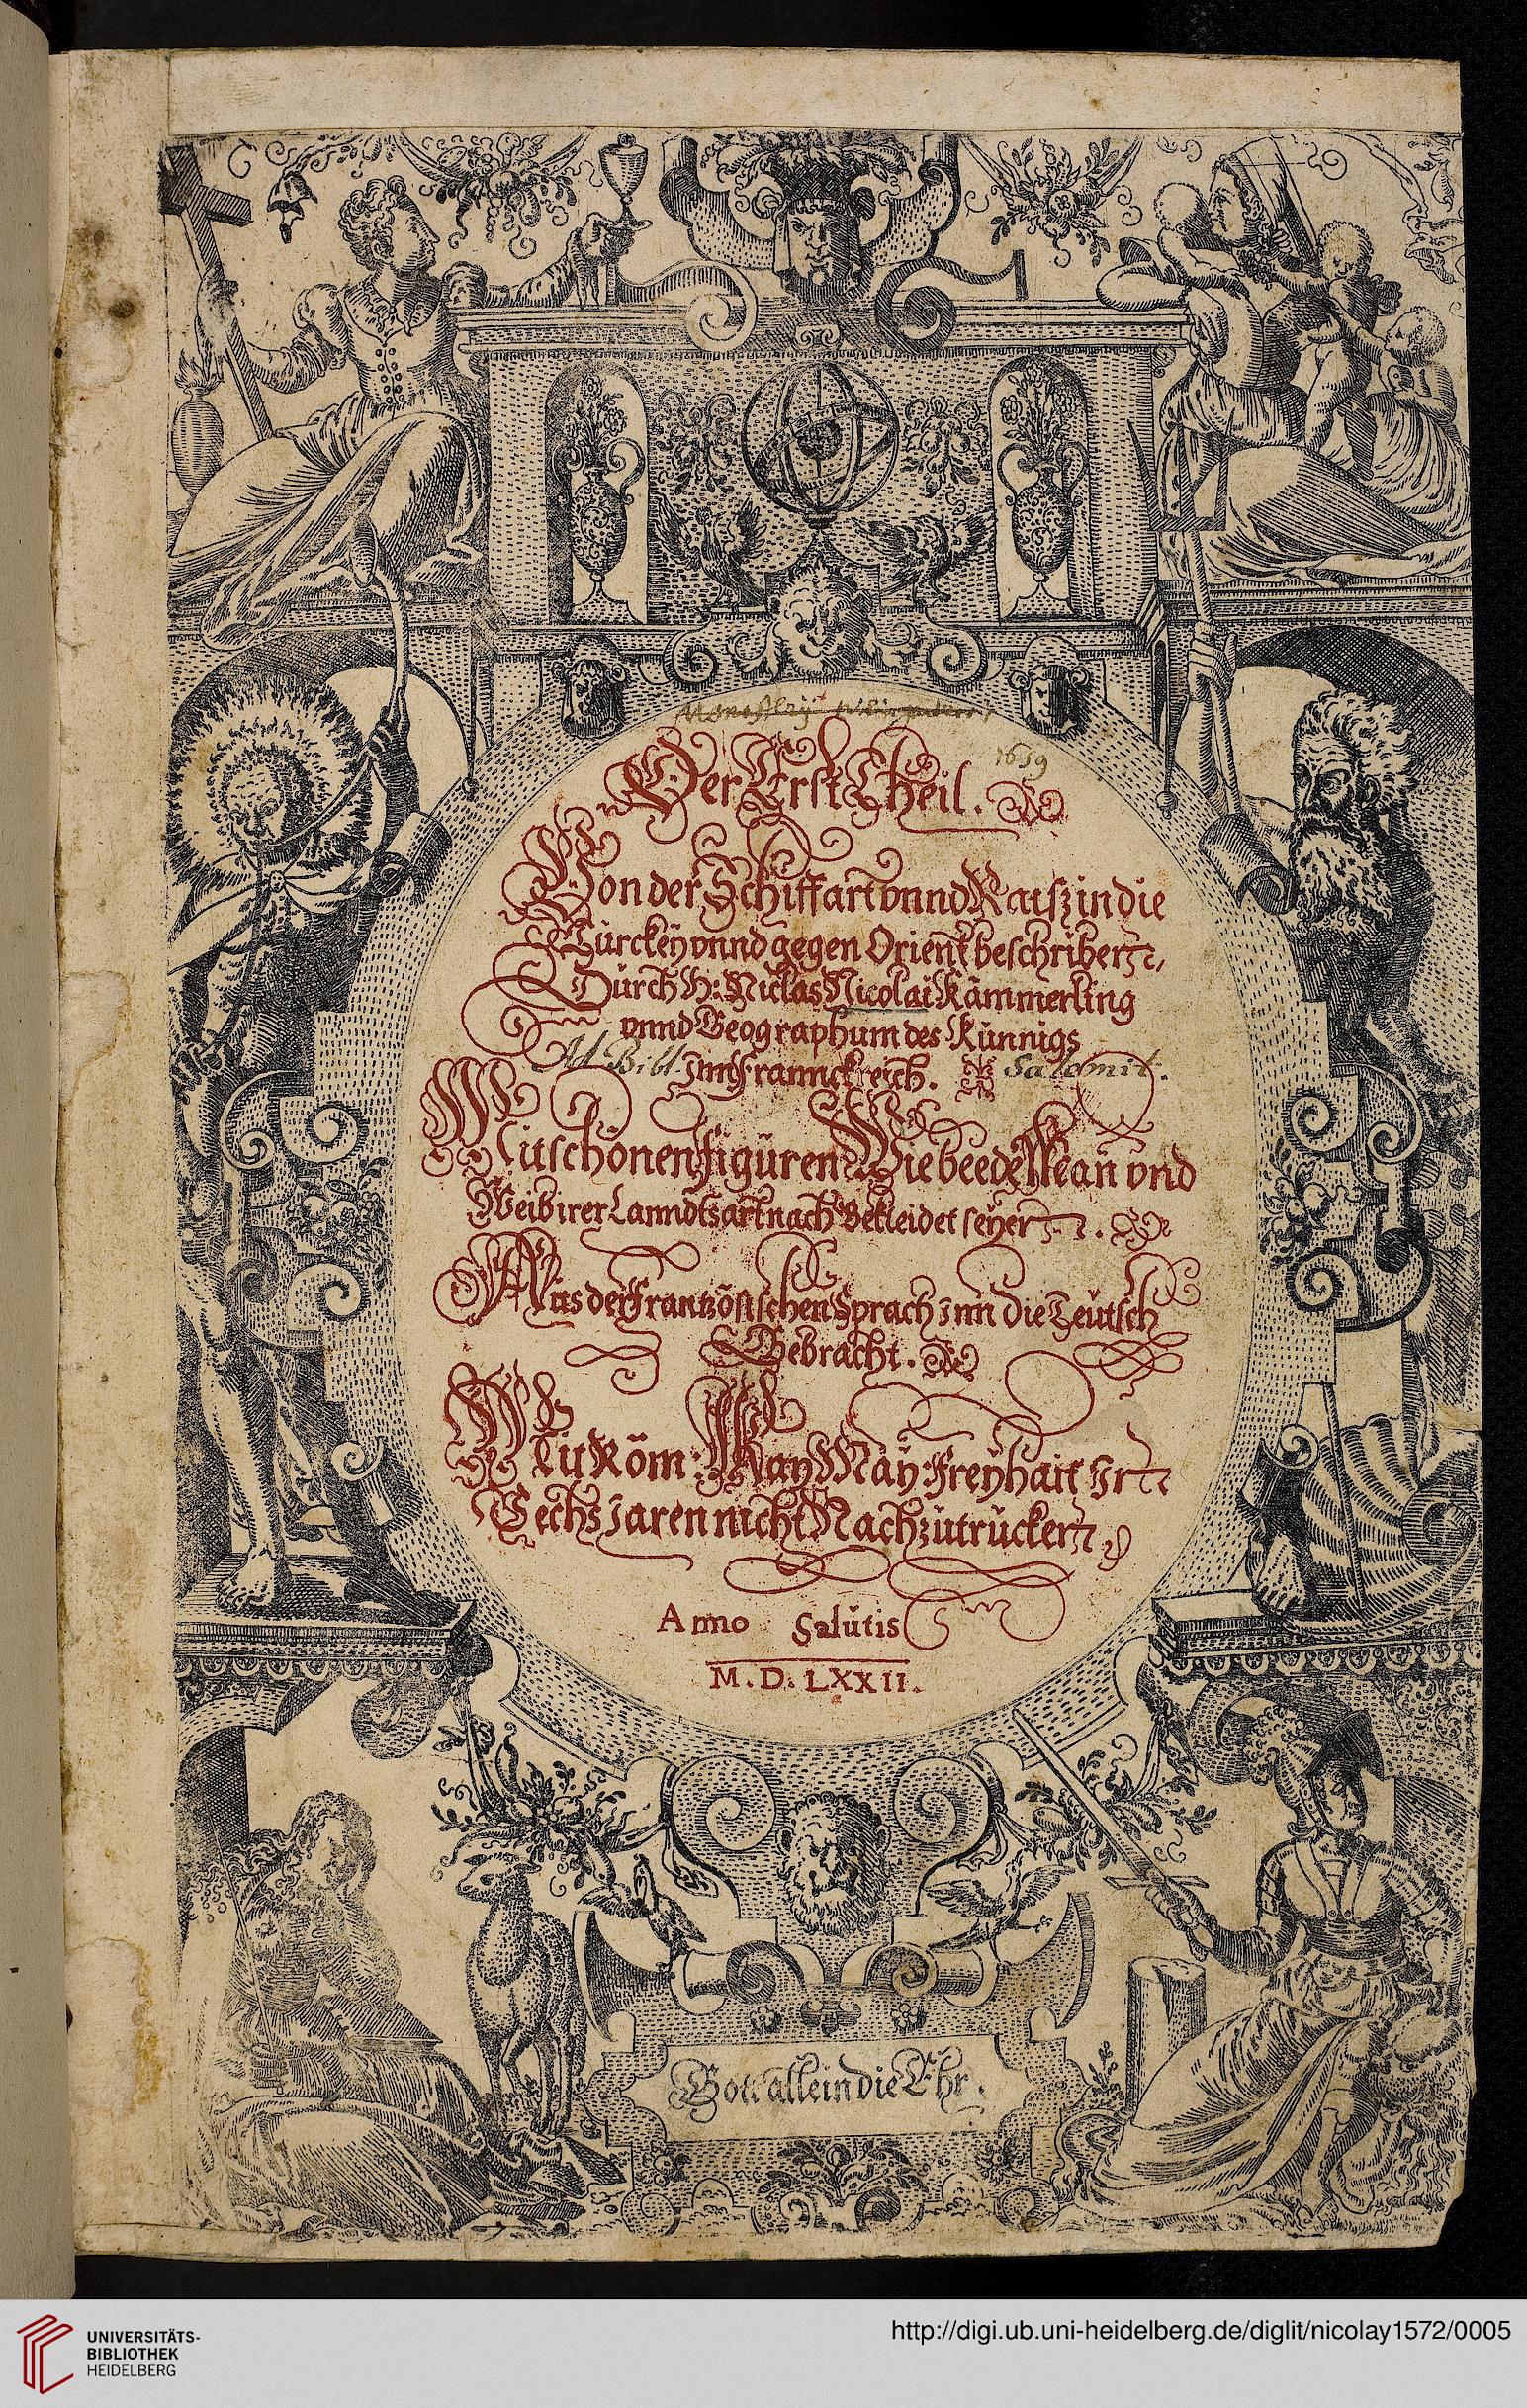 1659
Der Erst Theil.
Von der Schiffart vnnd Raisz in die
Türckey vnnd gegen Orient beschriben,
Durch H: Niclas Nicolai Kämmerling
vnnd Geographum des Künnigs
Ad Bibl. Jnn Franckreich. Salemit.
Mit schönen Figuren Wie beede Man vnd
Weib irer Lanndtsart nach Bekleidet seyen.
Aus der Frantzösischen Sprach jnn die Teütsch
Gebracht.
Mit Röm: Kay May: Freyhait Jn
Sechs Jaren nicht Nachzůtrücken.
Anno Salůtis
M.D.LXXII.
Gott allein die Ehr.
UNIVERSITÄTS-
BIBLIOTHEK
HEIDELBERG
http://digi.ub.uni-heidelberg.de/diglit/nicolay1572/0005